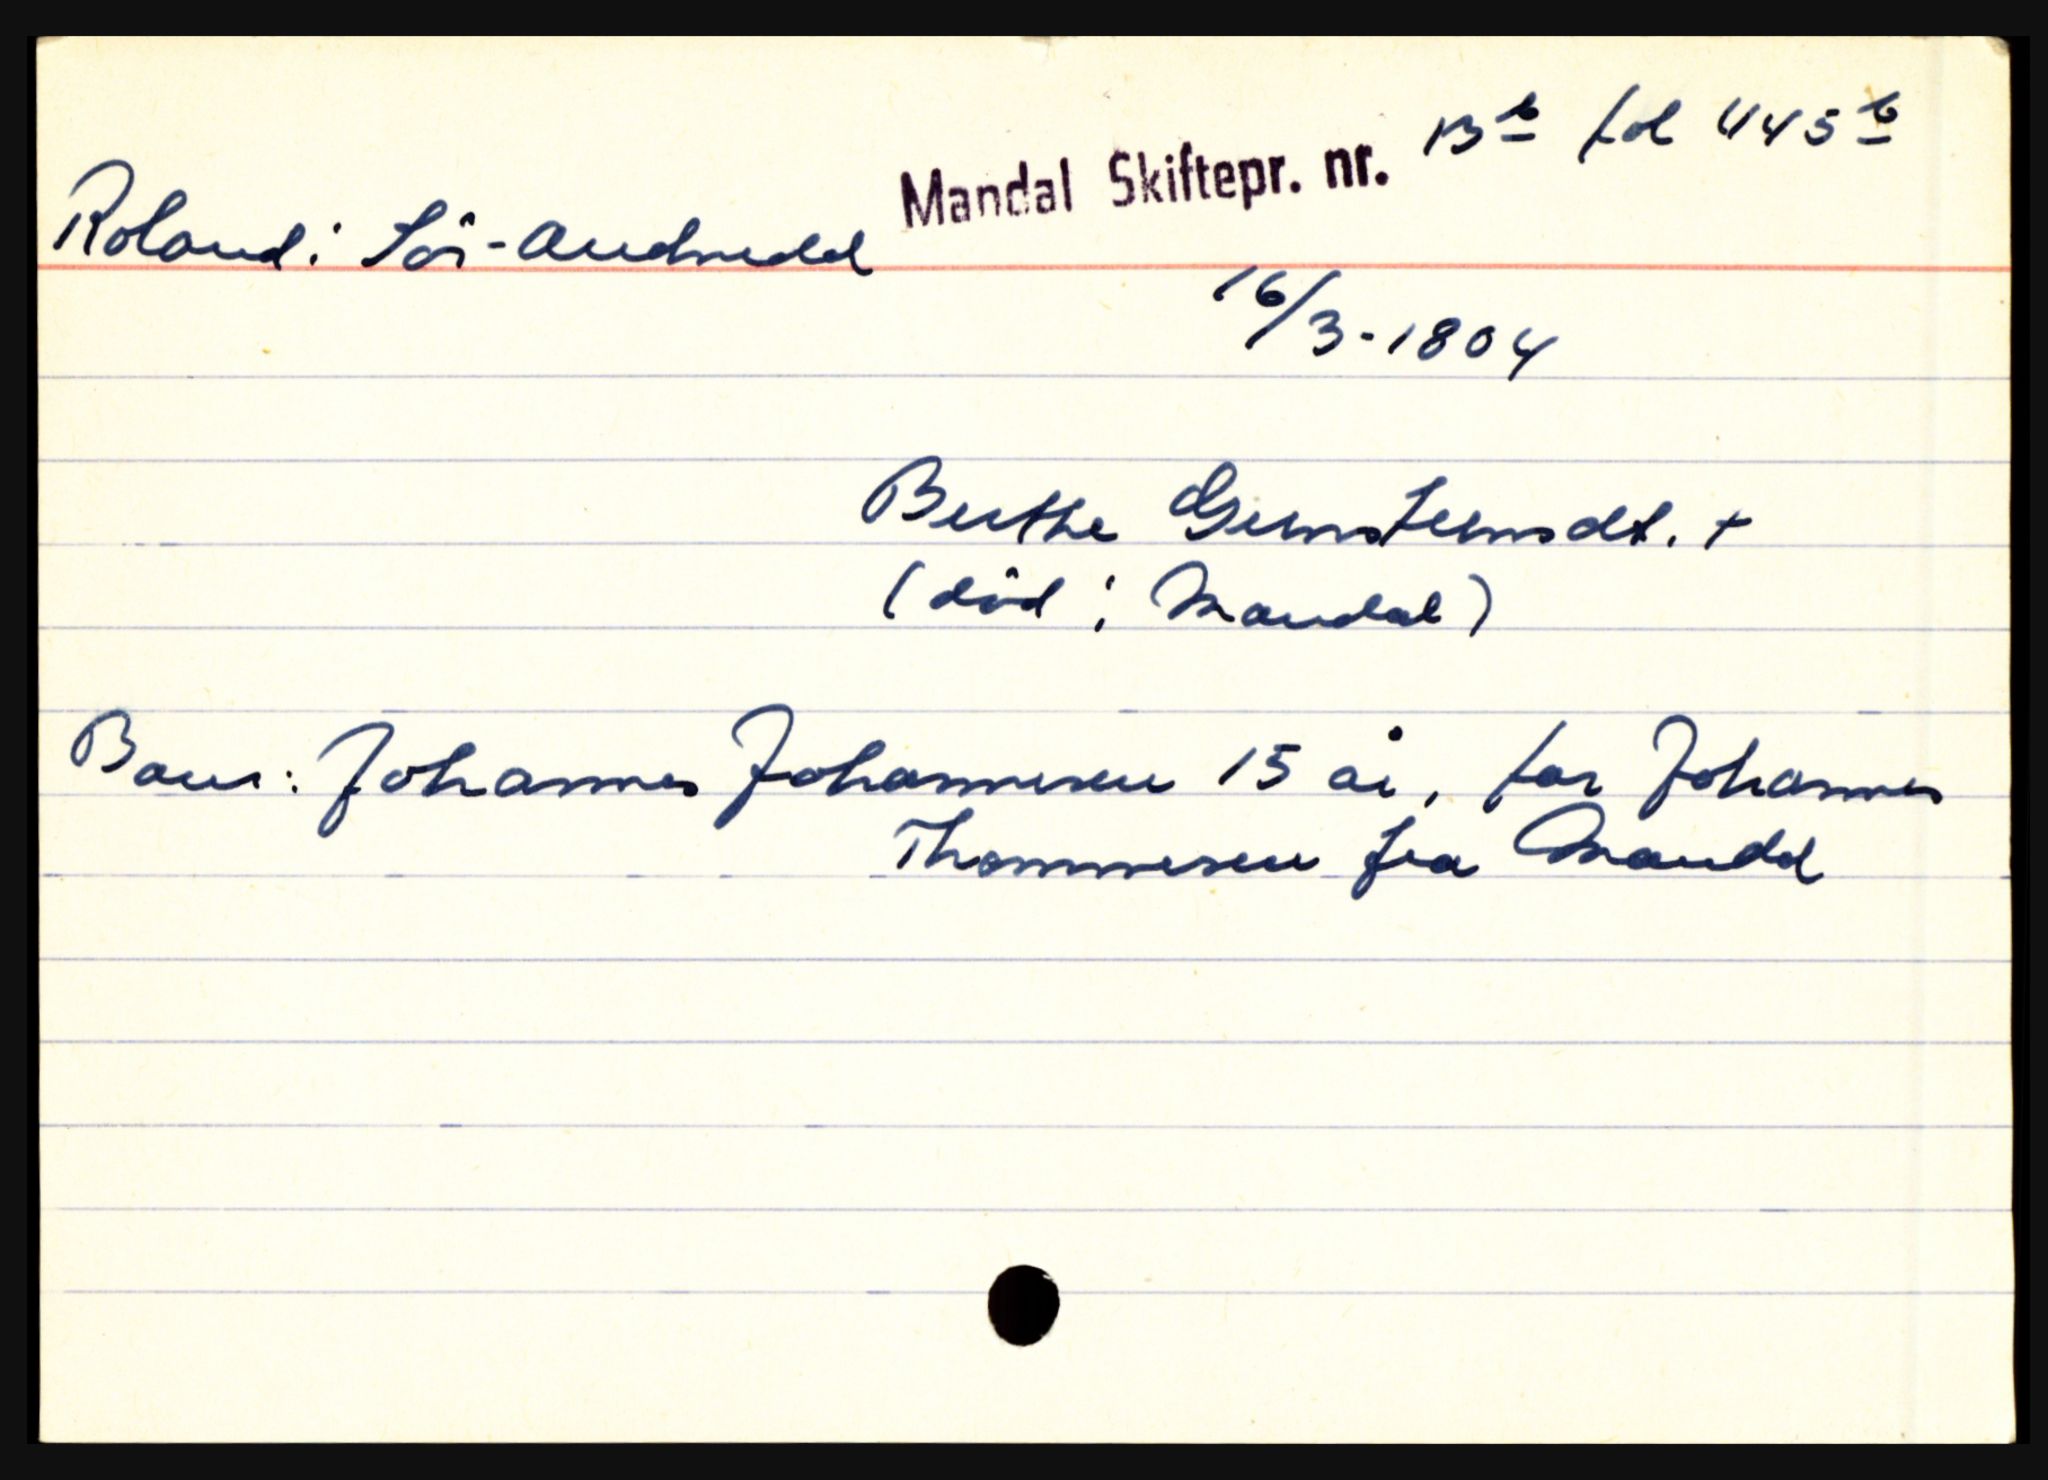 Mandal Skiftepr. nr. 13 b fol 445 b
Roland i Sör-Audnedal
16/3-1804
Berthe Gunstensdt. +
(död i Mandal)
Barn: Johannes Johannesen 15 år, far Johannes
Thommesen fra Mandal